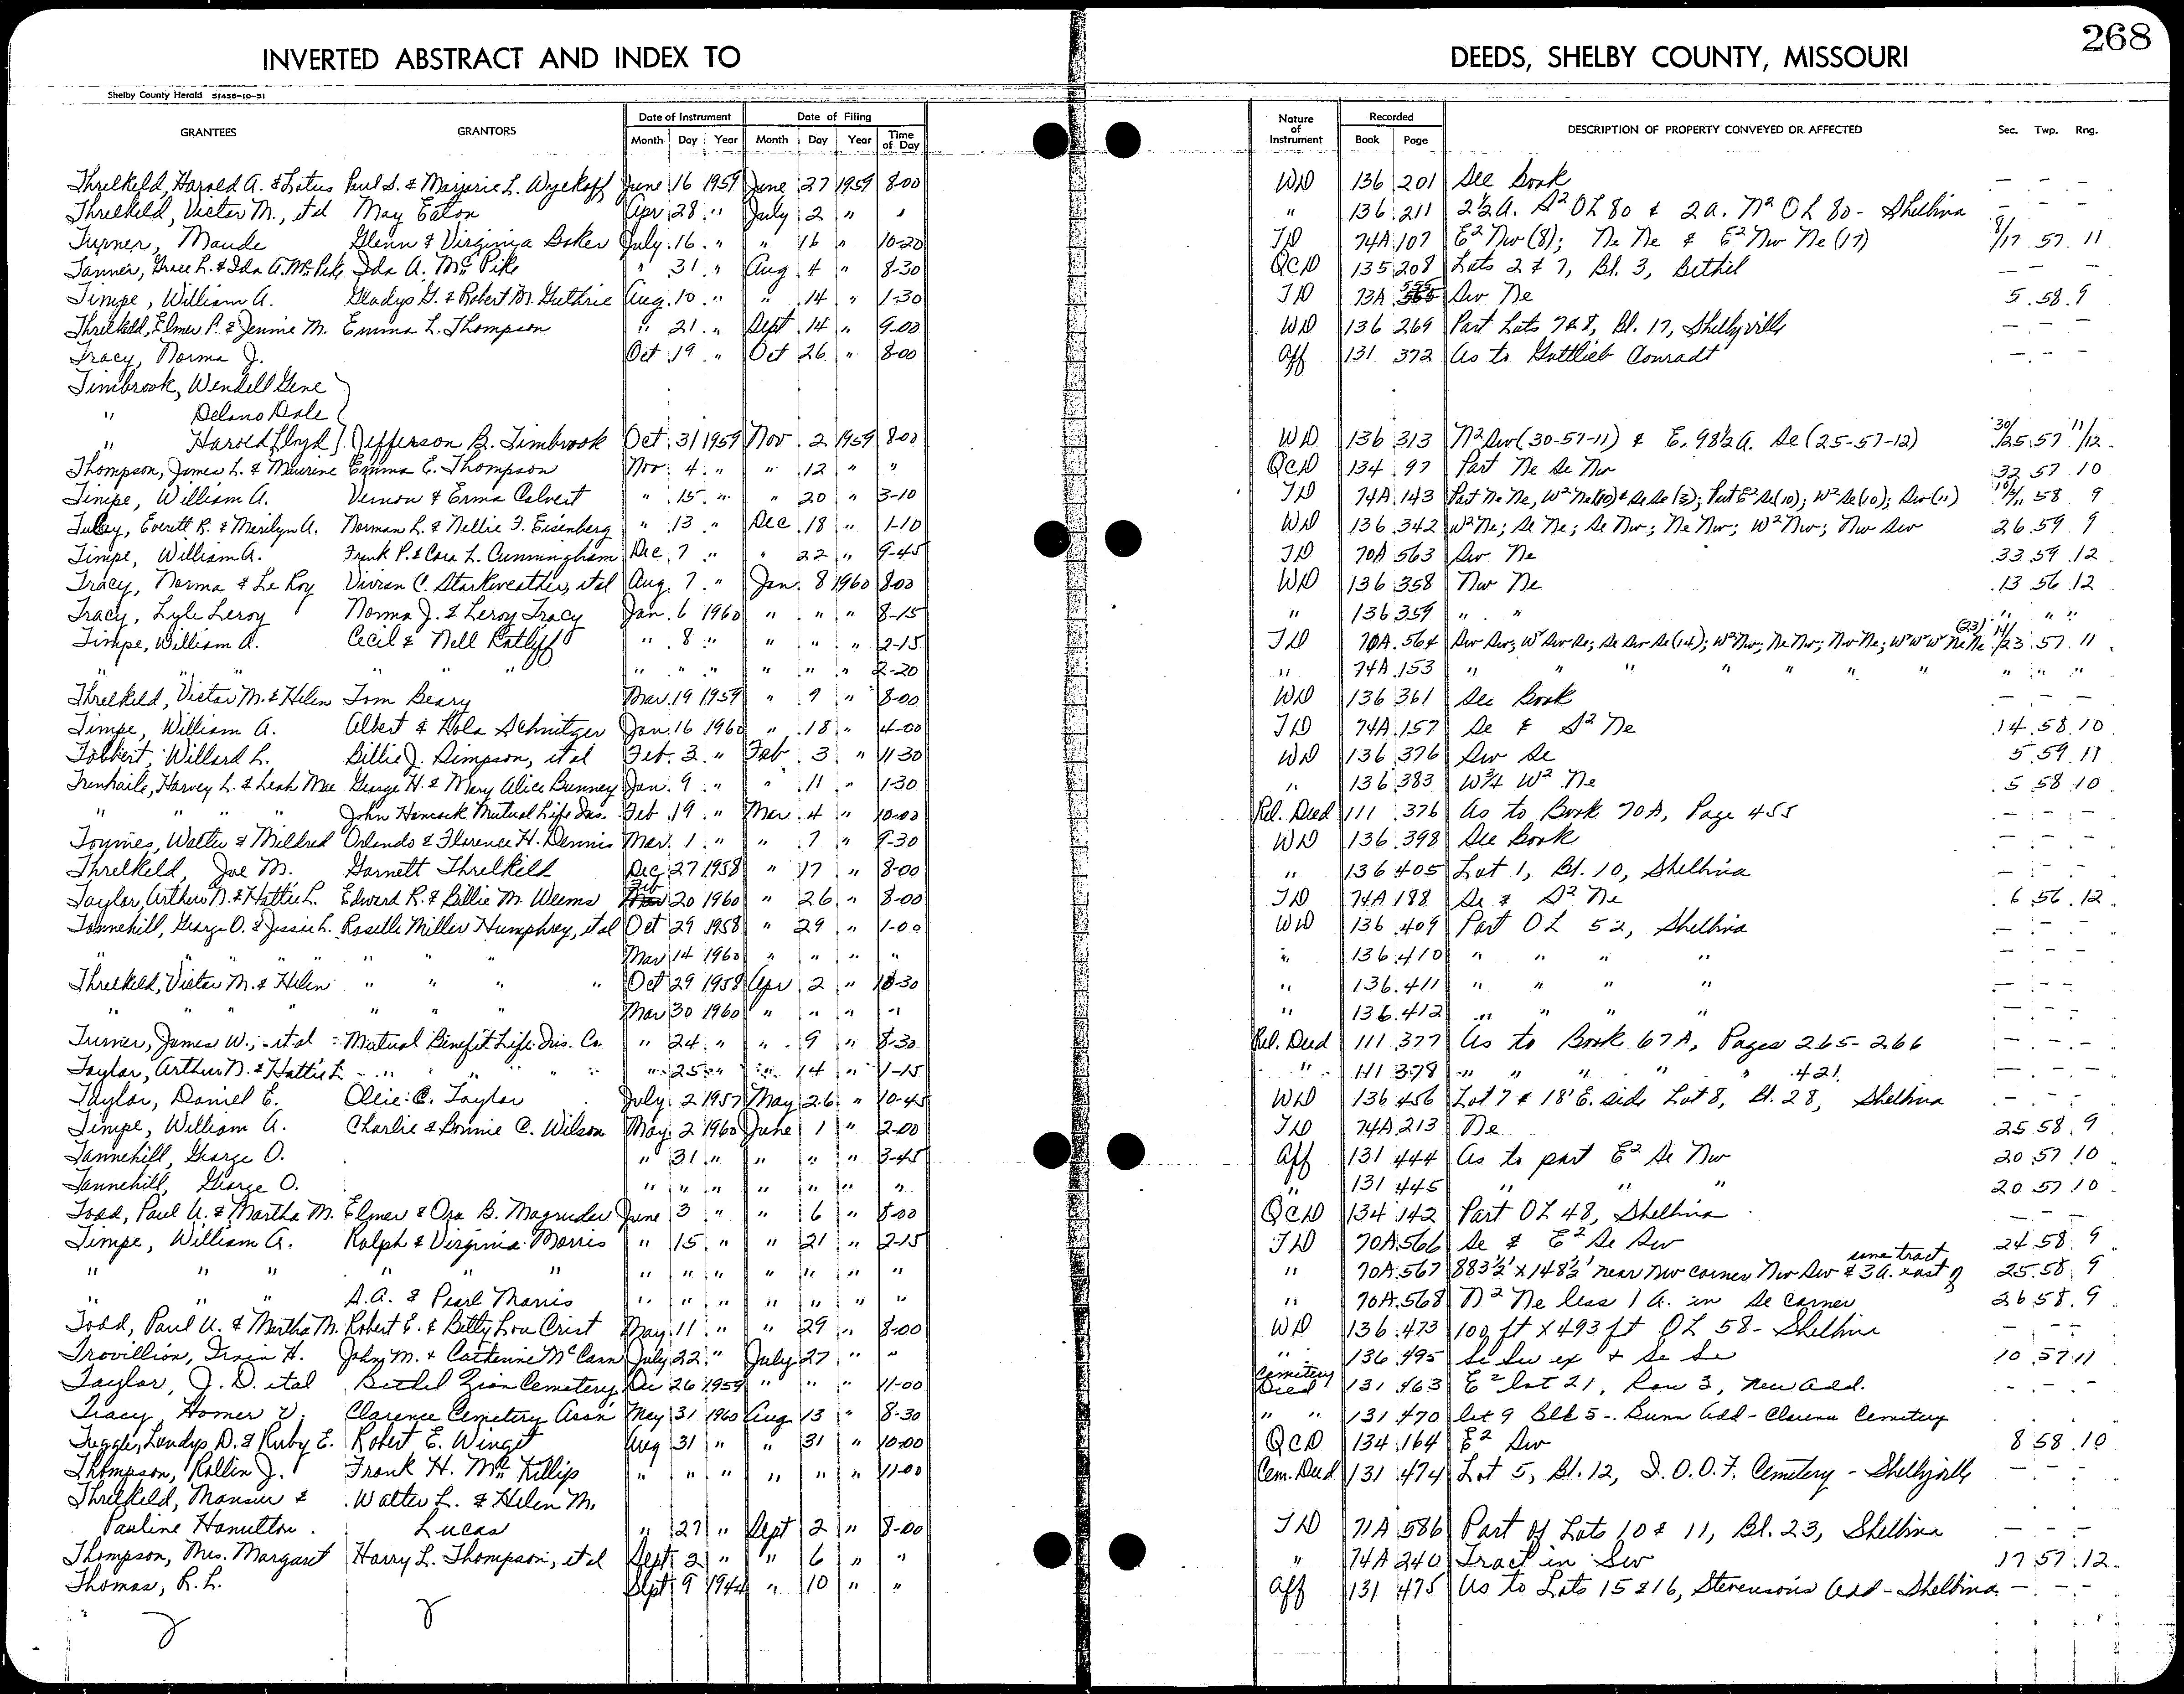 268
INVERTED ABSTRACT AND INDEX TO DEEDS, SHELBY COUNTY, MISSOURI
Shelby County Herald 51458-10-51
GRANTEES GRANTORS Date of Instrument Date of Filing Nature of Instrument Recorded DESCRIPTION OF PROPERTY CONVEYED OR AFFECTED Sec. Twp. Rng.
Month Day Year Month Day Year Time of Day Book Page
Threlkeld, Harold A. & Lotus Paul S. & Marjorie L. Wyckoff June 16 1959 June 27 1959 8-00 WD 136 201 See Book — — —
Threlkeld, Victor M., et al May Eaton Apr 28 " July 2 " " " 136 211 2½ a. S² OL 80 & 2 a. N² OL 80 - Shelbina — — —
Turner, Maude Glenn & Virginia Baker July 16 " " 16 " 10-20 TD 74A 107 E² Nw (8); Ne Ne & E² Nw Ne (17) 8/17 57 11
Tanner, Grace L. & Ida A. McPike Ida A. McPike " 31 " Aug 4 " 8-30 QCD 135 208 Lots 2 & 7, Bl. 3, Bethel — — —
Timpe, William A. Gladys G. & Robert M. Guthrie Aug. 10 " " 14 " 1-30 TD 73A Sw Ne 5 58 9
Threlkeld, Elmer P. & Jennie M. Emma L. Thompson " 21 " Sept 14 " 9-00 WD 136 269 Part Lots 7 & 8, Bl. 17, Shelbyville — — —
Tracy, Norma J. Oct 19 " Oct 26 " 8-00 Aff 131 372 As to Gottlieb Conradt — — —
Timbrook, Wendell Gene
" Delano Dale
" Harold Lloyd Jefferson B. Timbrook Oct. 31 1959 Nov 2 1959 8-00 WD 136 313 N² Sw (30-57-11) & E. 98½ a. Se (25-57-12) 30/25 57 11/12
Thompson, James L. & Maurine Emma E. Thompson Nov. 4 " " 12 " " QCD 134 97 Part Ne Se Nw 32 57 10
Timpe, William A. Vernon & Erma Calvert " 15 " " 20 " 3-10 TD 74A 143 Part Ne Ne, W² Ne (10) & Se Se (3); Part E² Se (10); W² Se (10); Sw (11) 58 9
Tuley, Everett R. & Merilyn A. Norman L. & Nellie F. Eisenberg " 13 " Dec 18 " 1-10 WD 136 342 W² Ne; Se Ne; Se Nw; Ne Nw; W² Nw; Nw Sw 26 59 9
Timpe, William A. Frank P. & Cora L. Cunningham Dec. 7 " " 22 " 9-45 TD 70A 563 Sw Ne 33 59 12
Tracy, Norma & Le Roy Vivian C. Starkweather, et al Aug. 7 " Jan 8 1960 8-00 WD 136 358 Nw Ne 13 56 12
Tracy, Lyle Leroy Norma J. & Leroy Tracy Jan. 6 1960 " " " 8-15 " 136 359 " " " " "
Timpe, William A. Cecil & Nell Ratliff " 8 " " " " 2-15 TD 70A 564 Sw Sw; W² Sw Se; Se Sw Se (14); W² Nw; Ne Nw; Nw Ne; Ne Ne (23) 14/23 57 11
" " " " " " " " " " " " 2-20 " 74A 153 " " " " " " " " " "
Threlkeld, Victor M. & Helen Tom Beary Mar. 19 1959 " 9 " 8-00 WD 136 361 See Book — — —
Timpe, William A. Albert & Hola Schnitzer Jan. 16 1960 " 18 " 4-00 TD 74A 157 Se & S² Ne 14 58 10
Tolbert, Willard L. Billie J. Simpson, et al Feb. 3 " Feb 3 " 11-30 WD 136 376 Sw Se 5 59 11
Trenhaile, Harvey L. & Leah Mae George H. & Mary Alice Bunney Jan. 9 " " 11 " 1-30 " 136 383 W¾ W² Ne 5 58 10
" " " " John Hancock Mutual Life Ins. Feb 19 " Mar 4 " 10-00 Rel. Deed 111 376 As to Book 70A, Page 455 — — —
Toymes, Walter & Mildred Orlando & Florence H. Dennis Mar. 1 " " 7 " 9-30 WD 136 398 See Book — — —
Threlkeld, Joe M. Garnett Threlkeld Dec 27 1958 " 17 " 8-00 " 136 405 Lot 1, Bl. 10, Shelbina — — —
Taylor, Arthur N. & Hattie L. Edward R. & Billie M. Weems Feb 20 1960 " 26 " 8-00 TD 74A 188 Se & S² Ne 6 56 12
Tannehill, George O. & Jessie L. Roselle Miller Humphrey, et al Oct 29 1958 " 29 " 1-00 WD 136 409 Part OL 52, Shelbina — — —
" " " " " " Mar 14 1960 " " " " " 136 410 " " " " — — —
Threlkeld, Victor M. & Helen " " " " Oct 29 1958 Apr 2 " 10-30 " 136 411 " " " " — — —
" " " " " " Mar 30 1960 " " " " " 136 412 " " " " — — —
Turner, James W., et al Mutual Benefit Life Ins. Co. " 24 " " 9 " 8-30 Rel. Deed 111 377 As to Book 67A, Pages 265-266 — — —
Taylor, Arthur N. & Hattie L " " " " " 25 " " 14 " 1-15 " 111 378 " " " " " 421 — — —
Taylor, Daniel E. Olie C. Taylor July 2 1957 May 26 " 10-45 WD 136 456 Lot 7 & 18' E. side Lot 8, Bl. 28, Shelbina — — —
Timpe, William A. Charlie & Bonnie C. Wilson May 2 1960 June 1 " 2-00 TD 74A 213 Ne 25 58 9
Tannehill, George O. " 31 " " " " 3-45 Aff 131 444 As to part E² Se Nw 20 57 10
Tannehill, George O. " " " " " " " " 131 445 " " " 20 57 10
Todd, Paul U. & Martha M. Elmer & Ora B. Magruder June 3 " " 6 " 8-00 QCD 134 142 Part OL 48, Shelbina — — —
Timpe, William A. Ralph & Virginia Morris " 15 " " 21 " 2-15 TD 70A 566 Se & E² Se Sw 24 58 9
" " " " " " " " " " " " " " 70A 567 883½' x 148½' near Nw corner Nw Sw & 3 a. east of same tract 25 58 9
" " " A.A. & Pearl Morris " " " " " " " " 70A 568 N² Ne less 1 a. in Se corner 26 58 9
Todd, Paul U. & Martha M. Robert E. & Betty Lou Crist May 11 " " 29 " 8-00 WD 136 473 100 ft x 493 ft OL 58 - Shelbina — — —
Trovillion, Irvin H. John M. & Catherine McCann July 22 " July 27 " " " 136 495 Se Sw ex & Se Se 10 57 11
Taylor, J. D. et al Bethel Zion Cemetery Dec 26 1959 " " " 11-00 Cemetery Deed 131 463 E² lot 21, Row 3, New Add. — — —
Tracy Homer V. Clarence Cemetery Ass'n May 31 1960 Aug. 13 " 8-30 " " 131 470 lot 9 Blk 5 - Bunn Add - Clarence Cemetery
Tuggle, Landys D. & Ruby E. Robert E. Winget Aug 31 " " 31 " 10-00 QCD 134 164 E² Sw 8 58 10
Thompson, Rollin J. Frank H. McKillip " " " " " " 11-00 Cem. Deed 131 474 Lot 5, Bl. 12, I.O.O.F. Cemetery - Shelbyville — — —
Threlkeld, Mansur & Walter L. & Helen M.
Pauline Hamilton Lucas " 27 " Sept 2 " 8-00 TD 71A 586 Part of Lots 10 & 11, Bl. 23, Shelbina — — —
Thompson, Mrs. Margaret Harry L. Thompson, et al Sept 2 " " 6 " " " 74A 240 Tract in Sw 17 57 12
Thomas, R. L. Sept 9 1944 " 10 " " Aff 131 475 As to Lots 15 & 16, Stevenson's Add - Shelbina — — —